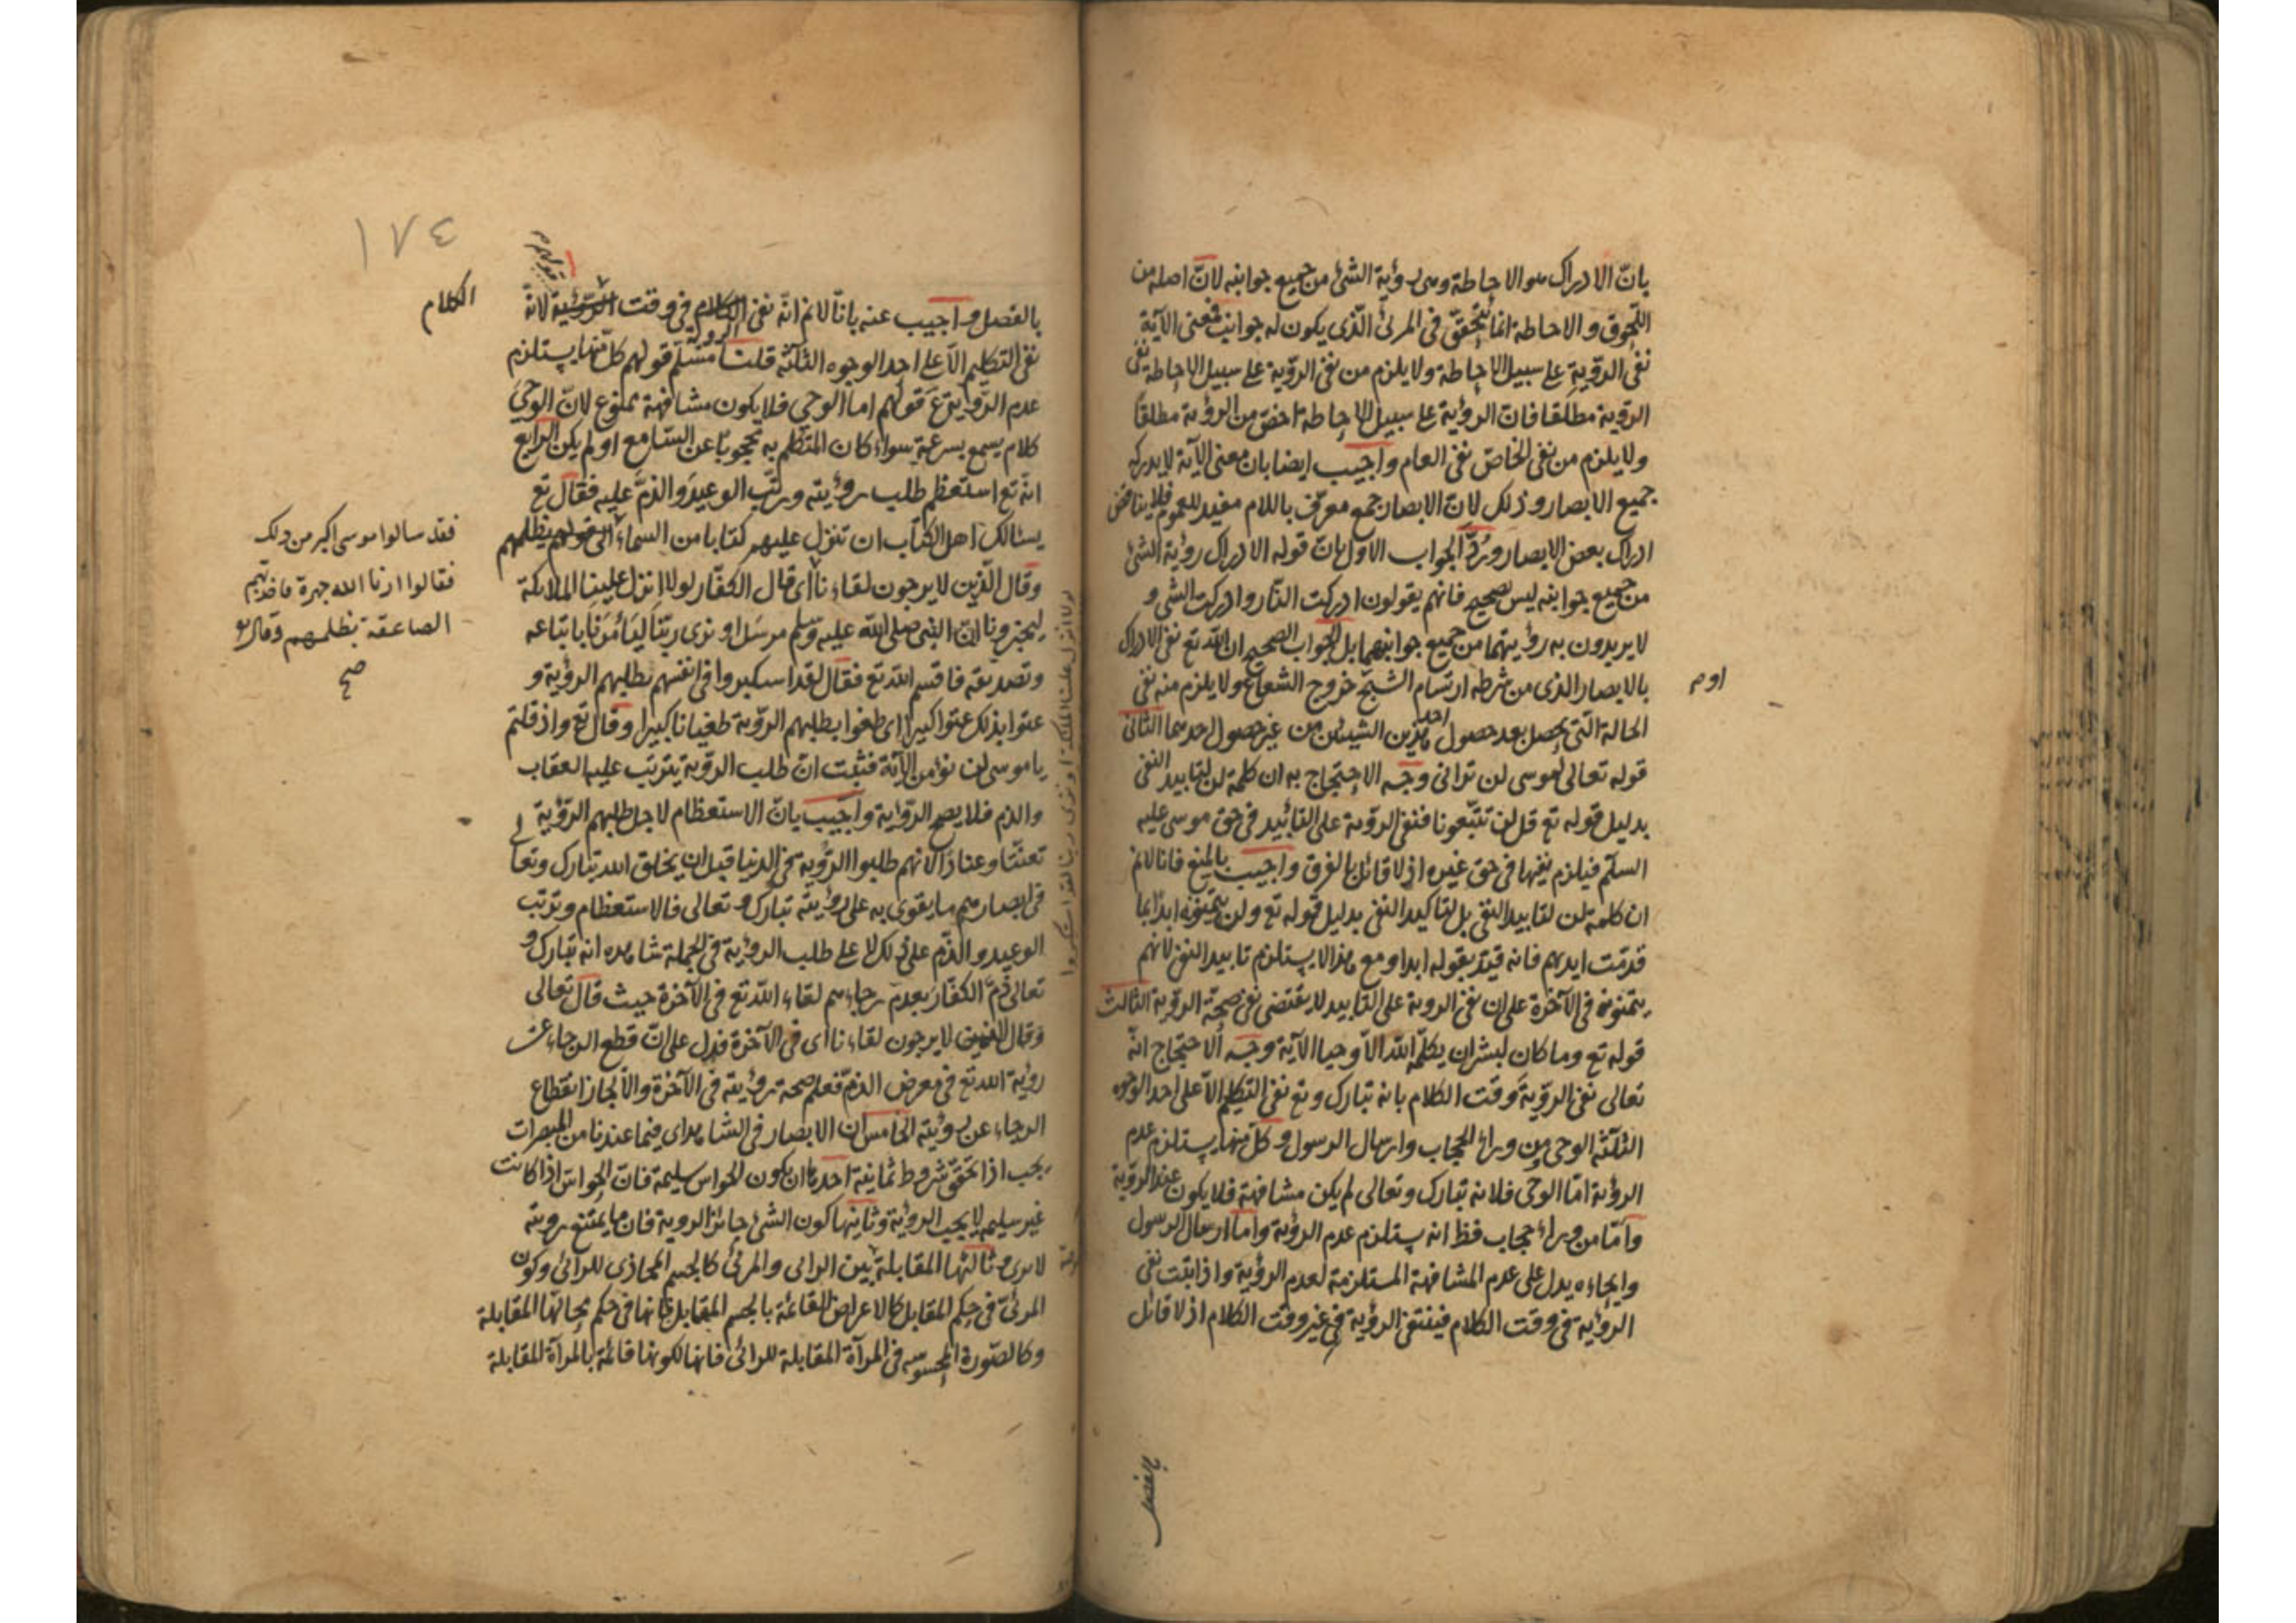 بانّ الادراك هو الاحاطة وهى رؤية الشئ من جميع جوانبه لانّ اصله من
اللّحوق والاحاطة انما يتحقّق فى المرئ الّذى يكون له جوانب فمعنى الآية
نفى الرؤية على سبيل الاحاطة ولا يلزم من نفى الرؤية على سبيل الاحاطة نفى
الرؤية مطلقا فانّ الرؤية على سبيل الاحاطة اخصّ من الرؤية مطلقاً
ولا يلزم من نفى الخاصّ نفى العام واجيب ايضا بان معنى الآية لا يدركه
جميع الابصار وذلك لانّ الابصار جمع معرّف باللام مفيد للعموم فلا يناقض
ادراك بعض الابصار ورُدّ الجواب الاول بانّ قوله الادراك رؤية الشئ
من جميع جوانبه ليس بصحيح فانهم يقولون ادركت النّار وادركت الشئ و
لا يريدون به رؤيتهما من جميع جوانبهما بل الجواب الصحيح ان الله تع نفى الادراك
بالابصار الذى من شرطه ارتسام الشبح خروج الشعاع ولا يلزم منه نفى
اوم
الحالة الّتى يحصل بعد حصول احد هذين الشيئين من غير حصول احدهما الثانى
قوله تعالى لموسى لن ترانى وجه الاحتجاج به ان كلمة لن لتابيد النفى
بدليل قوله تع قل لن تتّبعونا فنفى الرؤية على التابيد فى حق موسى عليه
السلم فيلزم نفيها فى حق غيره اذ لا قائل بالفرق واجيب بالمنع فانا لانم
ان كلمة لن لتابيد النفى بل لتاكيد النفى بدليل قوله تع ولن يتمنّوه ابدا بما
قدمّت ايديهم فانه قيّد بقوله ابدا ومع هذا لا يستلزم تابيد النفى لانهم
يتمنونه فى الآخرة على ان نفى الروية على التابيد لا يقتضى نفى صحّة الرؤية الثالث
قوله تع وما كان لبشر ان يكلّمه الله الاّ وحيا الآية وجه الاحتجاج انّه
تعالى نفى الرؤية وقت الكلام بانه تبارك وتع نفى التكلّم الاّ على احد الوجوه
الثلثة الوحى ومن وراء الحجاب وارسال الرسول وكلّ منها يستلزم عدم
الرؤية امّا الوحى فلانه تبارك وتعالى لم يكن مشافهة فلا يكون عند الرؤية
وامّا من وراء حجاب فظ انه يستلزم عدم الرؤية وامّا ارسال الرسول
وايحاءه يدل على عدم المشافهة المستلزمة لعدم الرؤية واذا ثبت نفى
الرؤية فى وقت الكلام فينتفى الرؤية فى غير وقت الكلام اذ لا قائل
بالفصل
١٧٤
بالفصل واجيب عنه بانّا لانم انّه نفى الكلام فى وقت الرؤية لانّه
الكلام
نفى التكليم الاّ على احد الوجوه الثلثة قلنا مسلّم قولهم كل منها يستلزم
عدم الرؤية قولهم اما الوحى فلا يكون مشافهة ممنوع لانّ الوحىَ
كلام يسمع بسرعة سواء كان المتكلم به محجوبًا عن السّامع او لم يكن الرابع
انّه تع استعظم طلب رؤيته ورتّب الوعيدَ والذمَّ عليه فقال تع
يسئالك اهل الكتاب ان تنزل عليهم كتابا من السماء الى قولهم بظلمهم
فقد سالوا موسى اكبر من ذلك
فقالوا ارنا الله جهرة فاخذتهم
الصاعقة بظلمهم وقال تع
صح
وقال الّذين لا يرجون لقاءنا اى قال الكفّار لولا انزل علينا الملائكة
ليخبرونا انّ النبى صلى الله عليه وسلم مرسَل او نرى ربّنا ليَأمُرَنا باتباعه
وتصديقه فاقسم الله تع فقال لقد استكبروا فى انفسهم بطلبهم الرؤية و
عتوا بذلك عتوا كبيرا اى طغوا بطلبهم الرؤية طغيانا كبيرا وقال تع واذ قلتم
يا موسى لن نؤمن الآية فثبت انّ طلب الرؤية يترتب عليه العقاب
والذم فلا يصح الرؤية واجيب بانّ الاستعظام لاجل طلبهم الرؤية
تعنّتا وعنادًا لانهم طلبوا الرؤية فى الدنيا قبل ان يخلق الله تبارك وتعالى
فى ابصارهم ما يقوى به على رؤيته تبارك وتعالى فالاستعظام وترتب
الوعيد والذّم على ذلك لا على طلب الرؤية فى الجملة شاهده انه تبارك و
تعالى ذمَّ الكفّار بعدم رجاءهم لقاء الله تع فى الآخرة حيث قال تعالى
وقال الذين لا يرجون لقاءنا اى فى الآخرة فدل على انّ قطع الرجاء عن
رؤية الله تع فى معرض الذمّ فعلم صحة رؤيته فى الآخرة والاّ لجاز انقطاع
الرجاء عن رؤيته الخامس ان الابصار فى الشاهد اى فيما عندنا من المبصرات
يجب اذا تحقّق شروط ثمانية احدها ان يكون الحواس سليمة فانّ الحواسّ اذا كانت
غير سليمة لا يجب الرؤية وثانيها كون الشئ جائز الروية فان ما يمتنع رويته
لا يرى وثالثها المقابلة بين الرائى والمرئى كالجسم المحاذى للرائى وكون
المرئىّ فى حكم المقابل كالاعراض القائمة بالجسم المقابل فانها فى حكم محالها المقابلة
وكالصّورة المحسوسه فى المرآة المقابلة للرائى فانها لكونها قائمة بالمرآة المقابلة
لولا انزل علينا الملائكة او نرى ربنا لقد استكبروا